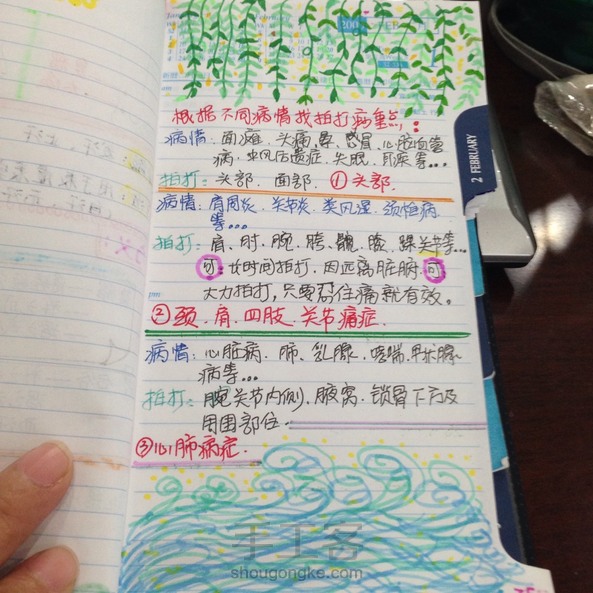 200
FEB
根据不同病情找拍打病重点:
病情: 面瘫、头痛、晕、感冒、心脏血管
病、中风后遗症、失眠、耳疾等...
拍打: 头部、面部、①头部.
病情: 肩周炎、关节炎、类风湿、颈恒病
等...
拍打: 肩、肘、腕、胯、髋、膝、踝关节等...
可: 长时间拍打, 因远离脏腑, 可
大力拍打, 只要忍住痛就有效。
pm
②颈、肩、四肢、关节痛症.
病情: 心脏病、肺、乳腺、哮喘、甲状腺
病等...
拍打: 腕关节内侧、腋窝、锁骨下方及
周围部位.
③心肺病症.
2 FEBRUARY
手工客
shougongke.com